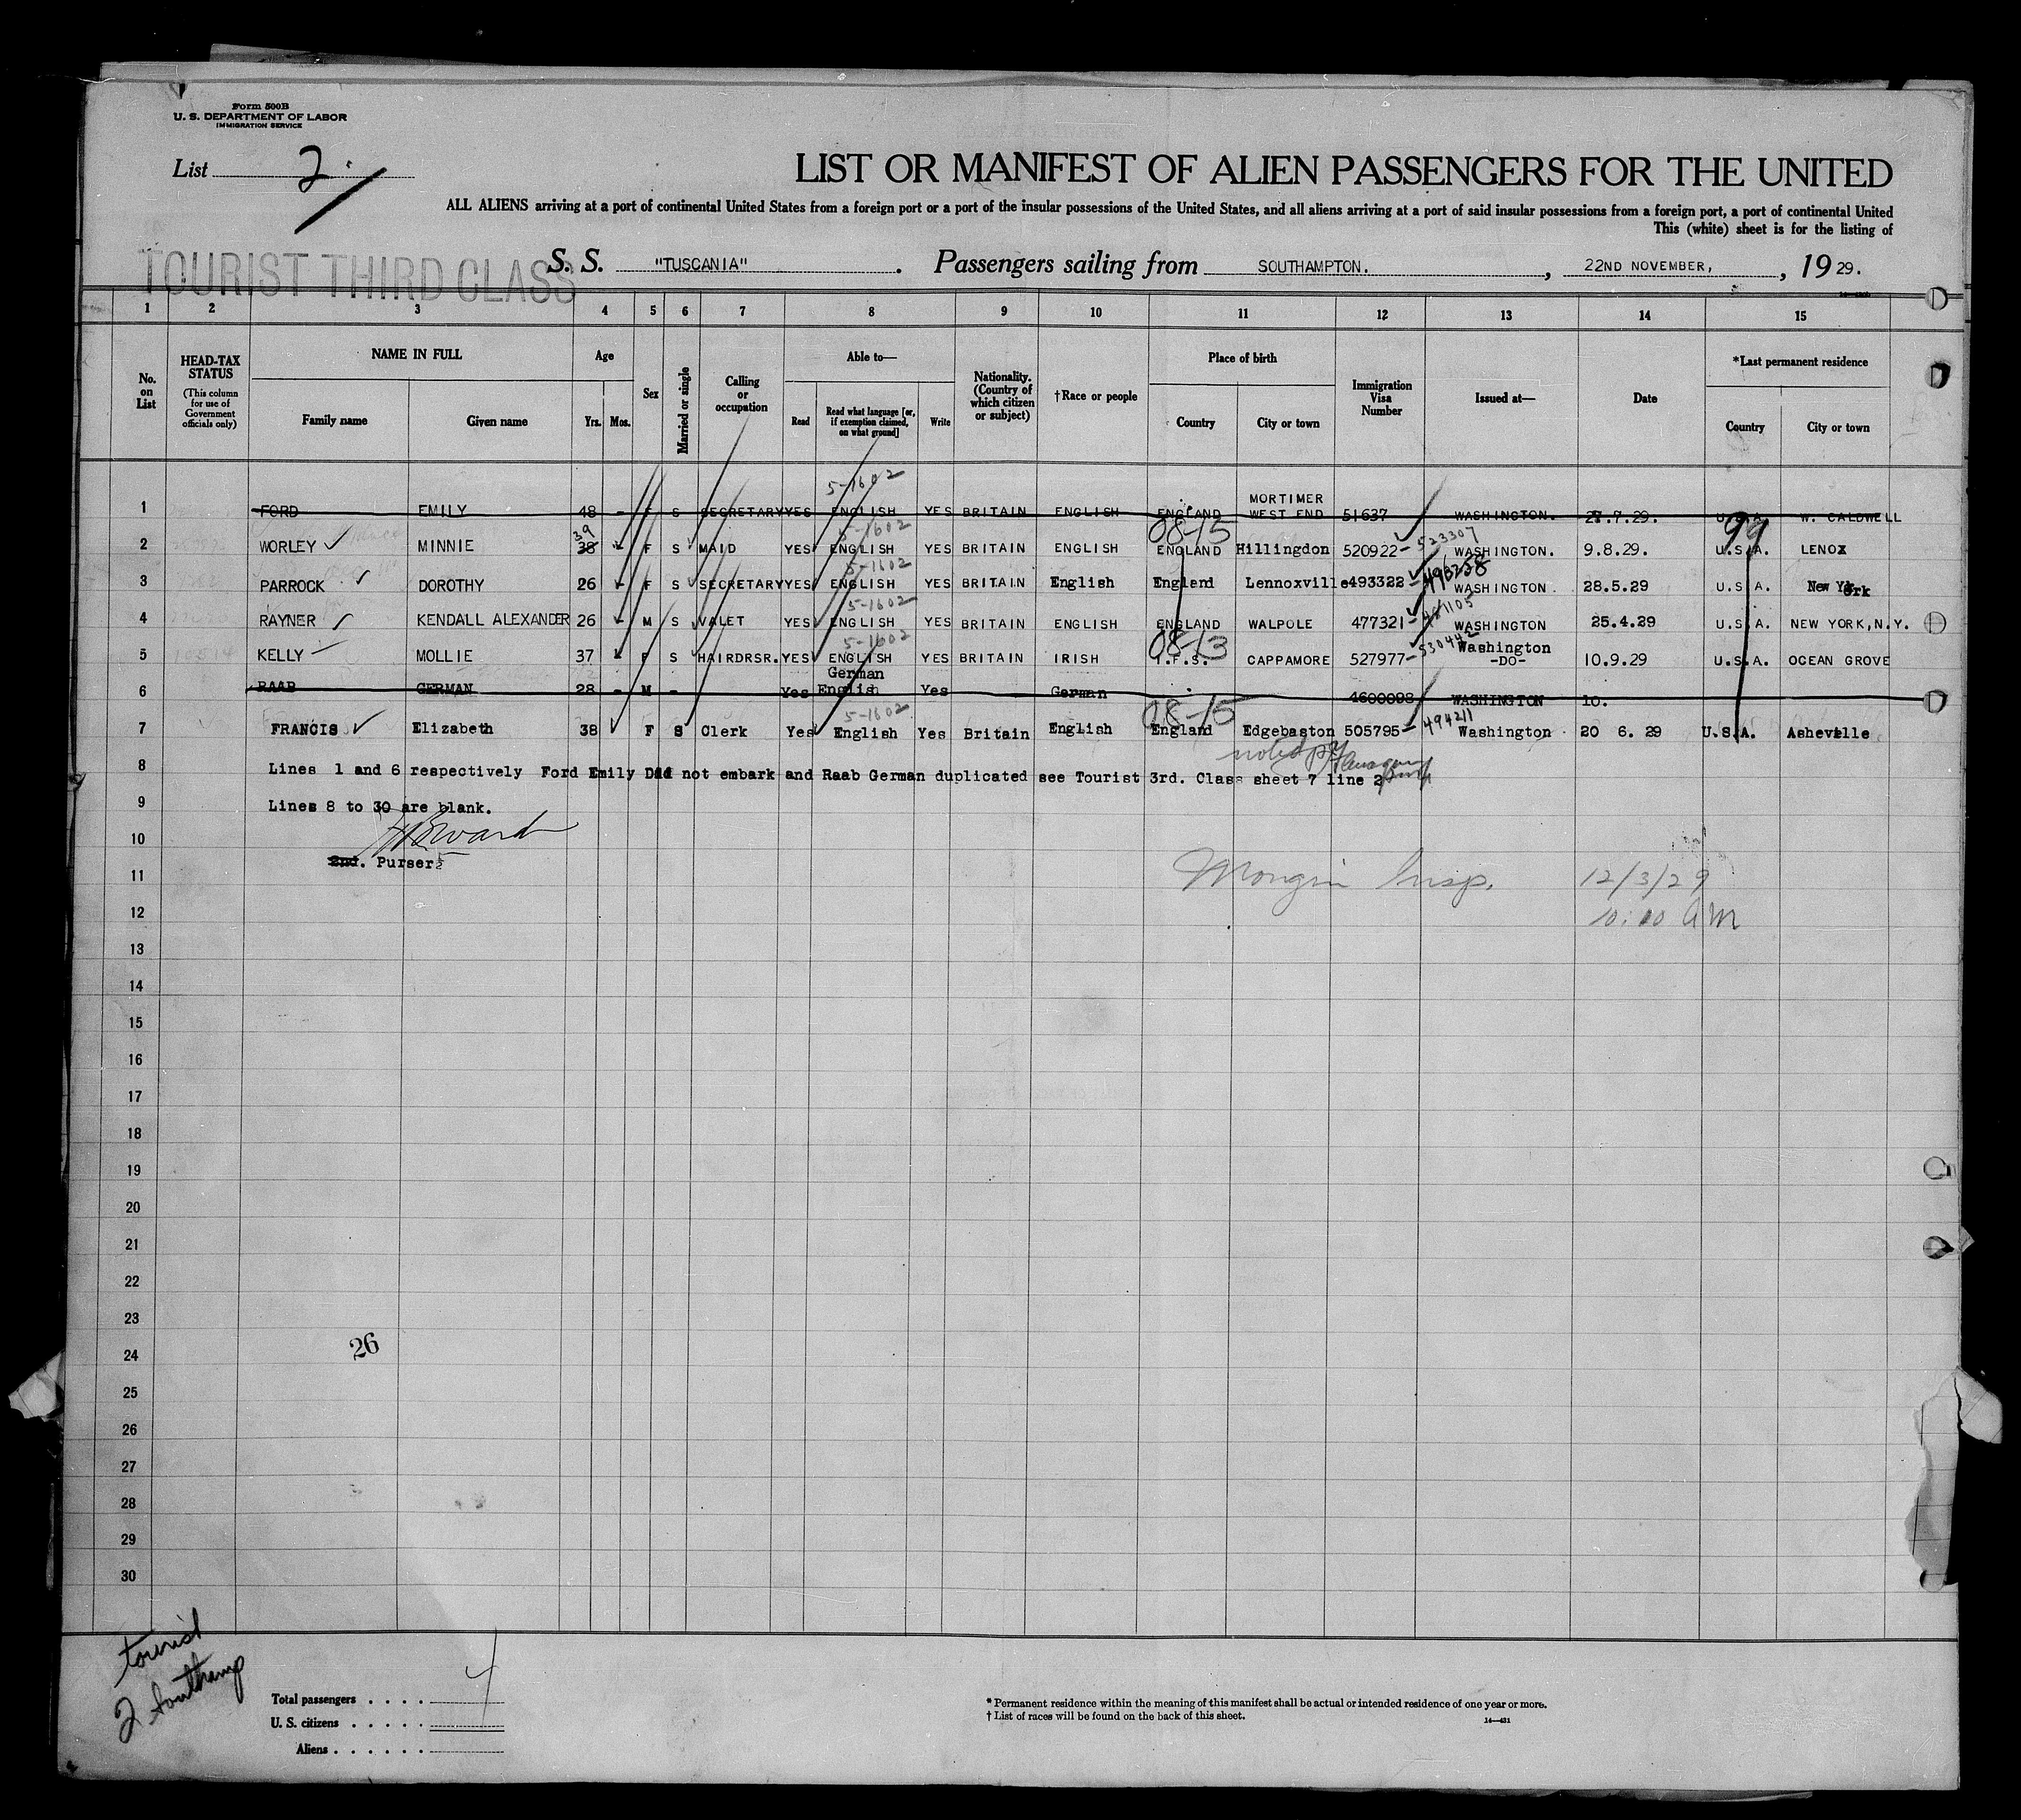 Form 500B
U. S. DEPARTMENT OF LABOR
IMMIGRATION SERVICE
List 2.
LIST OR MANIFEST OF ALIEN PASSENGERS FOR THE UNITED
ALL ALIENS arriving at a port of continental United States from a foreign port or a port of the insular possessions of the United States, and all aliens arriving at a port of said insular possessions from a foreign port, a port of continental United
This (white) sheet is for the listing of
TOURIST THIRD CLASS
S. S. "TUSCANIA" . Passengers sailing from SOUTHAMPTON. , 22ND NOVEMBER, , 19 29.
1 2 3 4 5 6 7 8 9 10 11 12 13 14 15
No. on List
HEAD-TAX STATUS (This column for use of Government officials only)
NAME IN FULL Family name Given name
Age Yrs. Mos.
Sex
Married or single
Calling or occupation
Able to— Read Read what language [or, if exemption claimed, on what ground] Write
Nationality. (Country of which citizen or subject)
†Race or people
Place of birth Country City or town
Immigration Visa Number
Issued at—
Date
*Last permanent residence Country City or town
5-1602
1 FORD EMILY 48 - F S SECRETARY YES ENGLISH YES BRITAIN ENGLISH ENGLAND MORTIMER WEST END 51637 WASHINGTON. 27.7.29. U.S.A. W. CALDWELL
39 5-1602 08-15 523307 99
2 WORLEY MINNIE 38 - F S MAID YES ENGLISH YES BRITAIN ENGLISH ENGLAND Hillingdon 520922- WASHINGTON. 9.8.29. U.S.A. LENOX
5-1602 498258
3 PARROCK DOROTHY 26 - F S SECRETARY YES ENGLISH YES BRITAIN English England Lennoxville 493322- WASHINGTON. 28.5.29 U.S.A. New York
5-1602 481105
4 RAYNER KENDALL ALEXANDER 26 - M S VALET YES ENGLISH YES BRITAIN ENGLISH ENGLAND WALPOLE 477321- WASHINGTON 25.4.29 U.S.A. NEW YORK,N.Y.
5-1602 08-13 530442 Washington
5 KELLY MOLLIE 37 F S HAIRDRSR. YES ENGLISH YES BRITAIN IRISH I.F.S. CAPPAMORE 527977- -DO- 10.9.29 U.S.A. OCEAN GROVE
German
6 RAAB GERMAN 28 - M - Yes English Yes German 4600098 WASHINGTON 10.
5-1602 08-15 494211
7 FRANCIS Elizabeth 38 F S Clerk Yes English Yes Britain English England Edgebaston 505795- Washington 20 6. 29 U.S.A. Asheville
noted
8 Lines 1 and 6 respectively Ford Emily Did not embark and Raab German duplicated see Tourist 3rd. Class sheet 7 line 2
9 Lines 8 to 30 are blank.
10
2nd. Purser
11 Mongin Insp. 12/3/29
12 10:00 AM
13
14
15
16
17
18
19
20
21
22
23
24 26
25
26
27
28
29
30
tourist
2 Southamp
Total passengers . . . . 4
U. S. citizens . . . . .
Aliens . . . . . .
* Permanent residence within the meaning of this manifest shall be actual or intended residence of one year or more.
† List of races will be found on the back of this sheet.
14—431